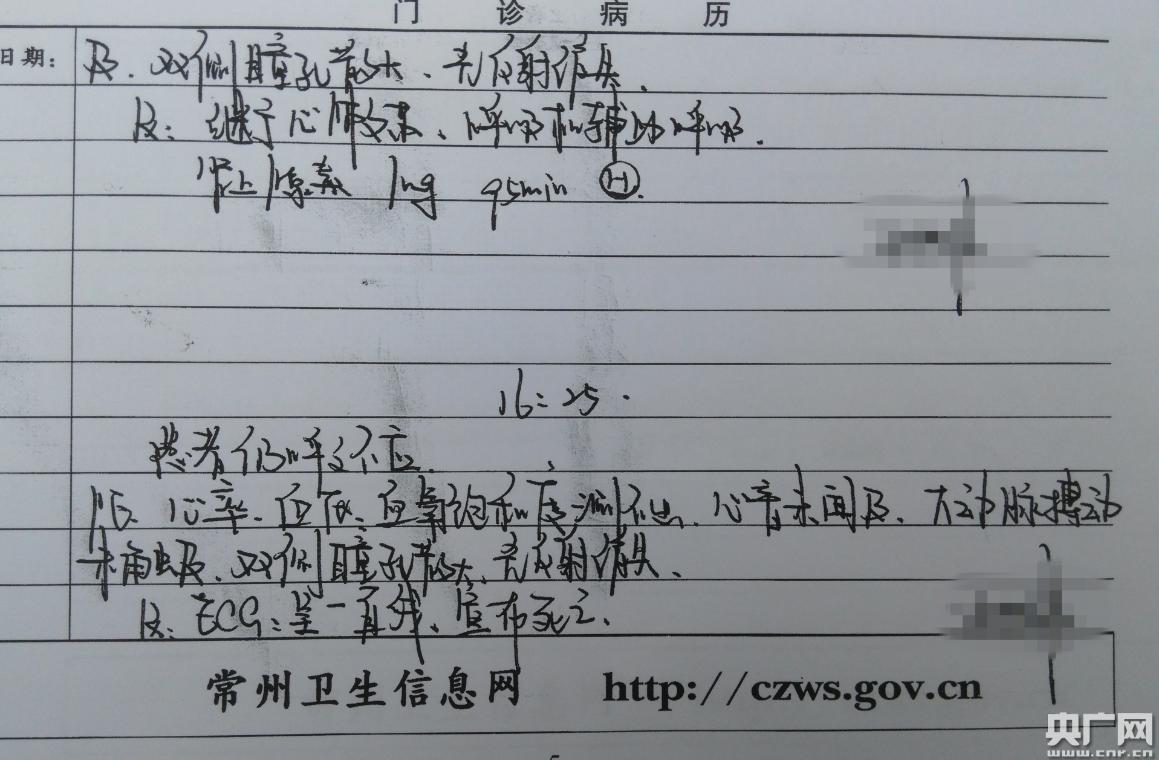 门诊病历
日期:
及、双侧瞳孔散大、光反射消失.
R: 继予心肺复苏、呼吸机辅助呼吸.
肾上腺素 1mg q5min Ⓗ.
16:25.
患者仍呼之不应.
PE: 心率、血压、血氧饱和度测不出、心音未闻及、大动脉搏动
未触及、双侧瞳孔散大、光反射消失、
R: ECG: 呈一直线、宣布死亡.
常州卫生信息网 http://czws.gov.cn
5
央广网
www.cnr.cn